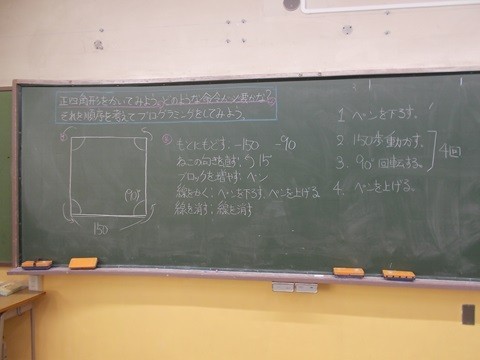 正四角形をかいてみよう。どのような命令が必要かな?
それを順序を考えてプログラミングをしてみよう。
90°
150
もともどす、-150 -90
ねこの向きを直す、 15
ブロックを増やす、ペン
線をかく、ペンを下ろす、ペンを上げる
線を消す、線を消す
1 ペンを下ろす。
2. 150歩動かす。
3. 90°回転する。
4回
4. ペンを上げる。